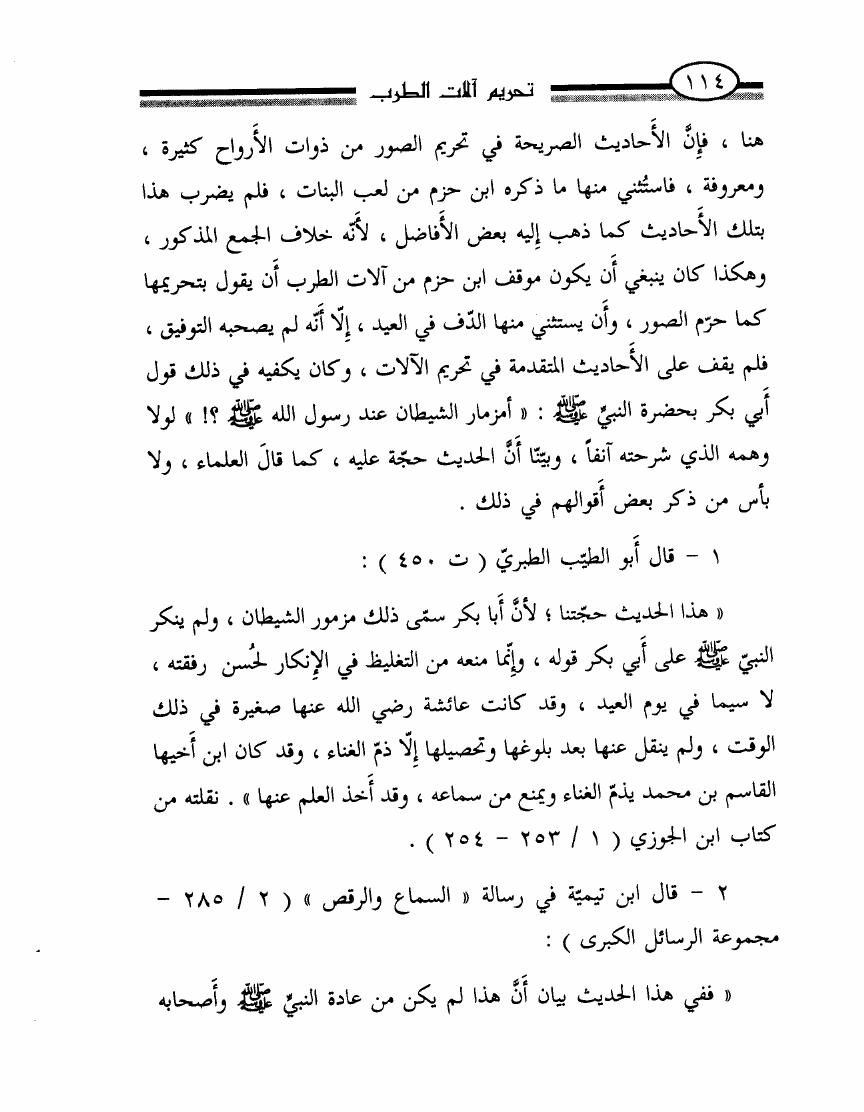 ١١٤ تحريم آلات الطرب
هنا ، فإِنَّ الأَحاديث الصريحة في تحريم الصور من ذوات الأَرواح كثيرة ،
ومعروفة ، فاستُثني منها ما ذكره ابن حزم من لعب البنات ، فلم يضرب هذا
بتلك الأَحاديث كما ذهب إِليه بعض الأَفاضل ، لأَنّه خلاف الجمع المذكور ،
وهكذا كان ينبغي أَن يكون موقف ابن حزم من آلات الطرب أَن يقول بتحريمها
كما حرّم الصور ، وأَن يستثني منها الدّف في العيد ، إِلّا أَنّه لم يصحبه التوفيق ،
فلم يقف على الأَحاديث المتقدمة في تحريم الآلات ، وكان يكفيه في ذلك قول
أَبي بكر بحضرة النبيِّ ﷺ : « أمزمار الشيطان عند رسول الله ﷺ ؟! » لولا
وهمه الذي شرحته آنفاً ، وبيّنّا أَنَّ الحديث حجّة عليه ، كما قالَ العلماء ، ولا
بأس من ذكر بعض أَقوالهم في ذلك .
١ - قال أَبو الطيّب الطبريّ ( ت ٤٥٠ ) :
« هذا الحديث حجّتنا ؛ لأنَّ أَبا بكر سمّى ذلك مزمور الشيطان ، ولم ينكر
النبيّ ﷺ على أَبي بكر قوله ، وإِنّما منعه من التغليظ في الإِنكار لحُسن رفقته ،
لا سيما في يوم العيد ، وقد كانت عائشة رضي الله عنها صغيرة في ذلك
الوقت ، ولم ينقل عنها بعد بلوغها وتحصيلها إِلّا ذمّ الغناء ، وقد كان ابن أَخيها
القاسم بن محمد يذمّ الغناء ويمنع من سماعه ، وقد أَخذ العلم عنها » . نقلته من
كتاب ابن الجوزي ( ١ / ٢٥٣ - ٢٥٤ ) .
٢ - قال ابن تيميّة في رسالة « السماع والرقص » ( ٢ / ٢٨٥ -
مجموعة الرسائل الكبرى ) :
« ففي هذا الحديث بيان أَنَّ هذا لم يكن من عادة النبيِّ ﷺ وأَصحابه